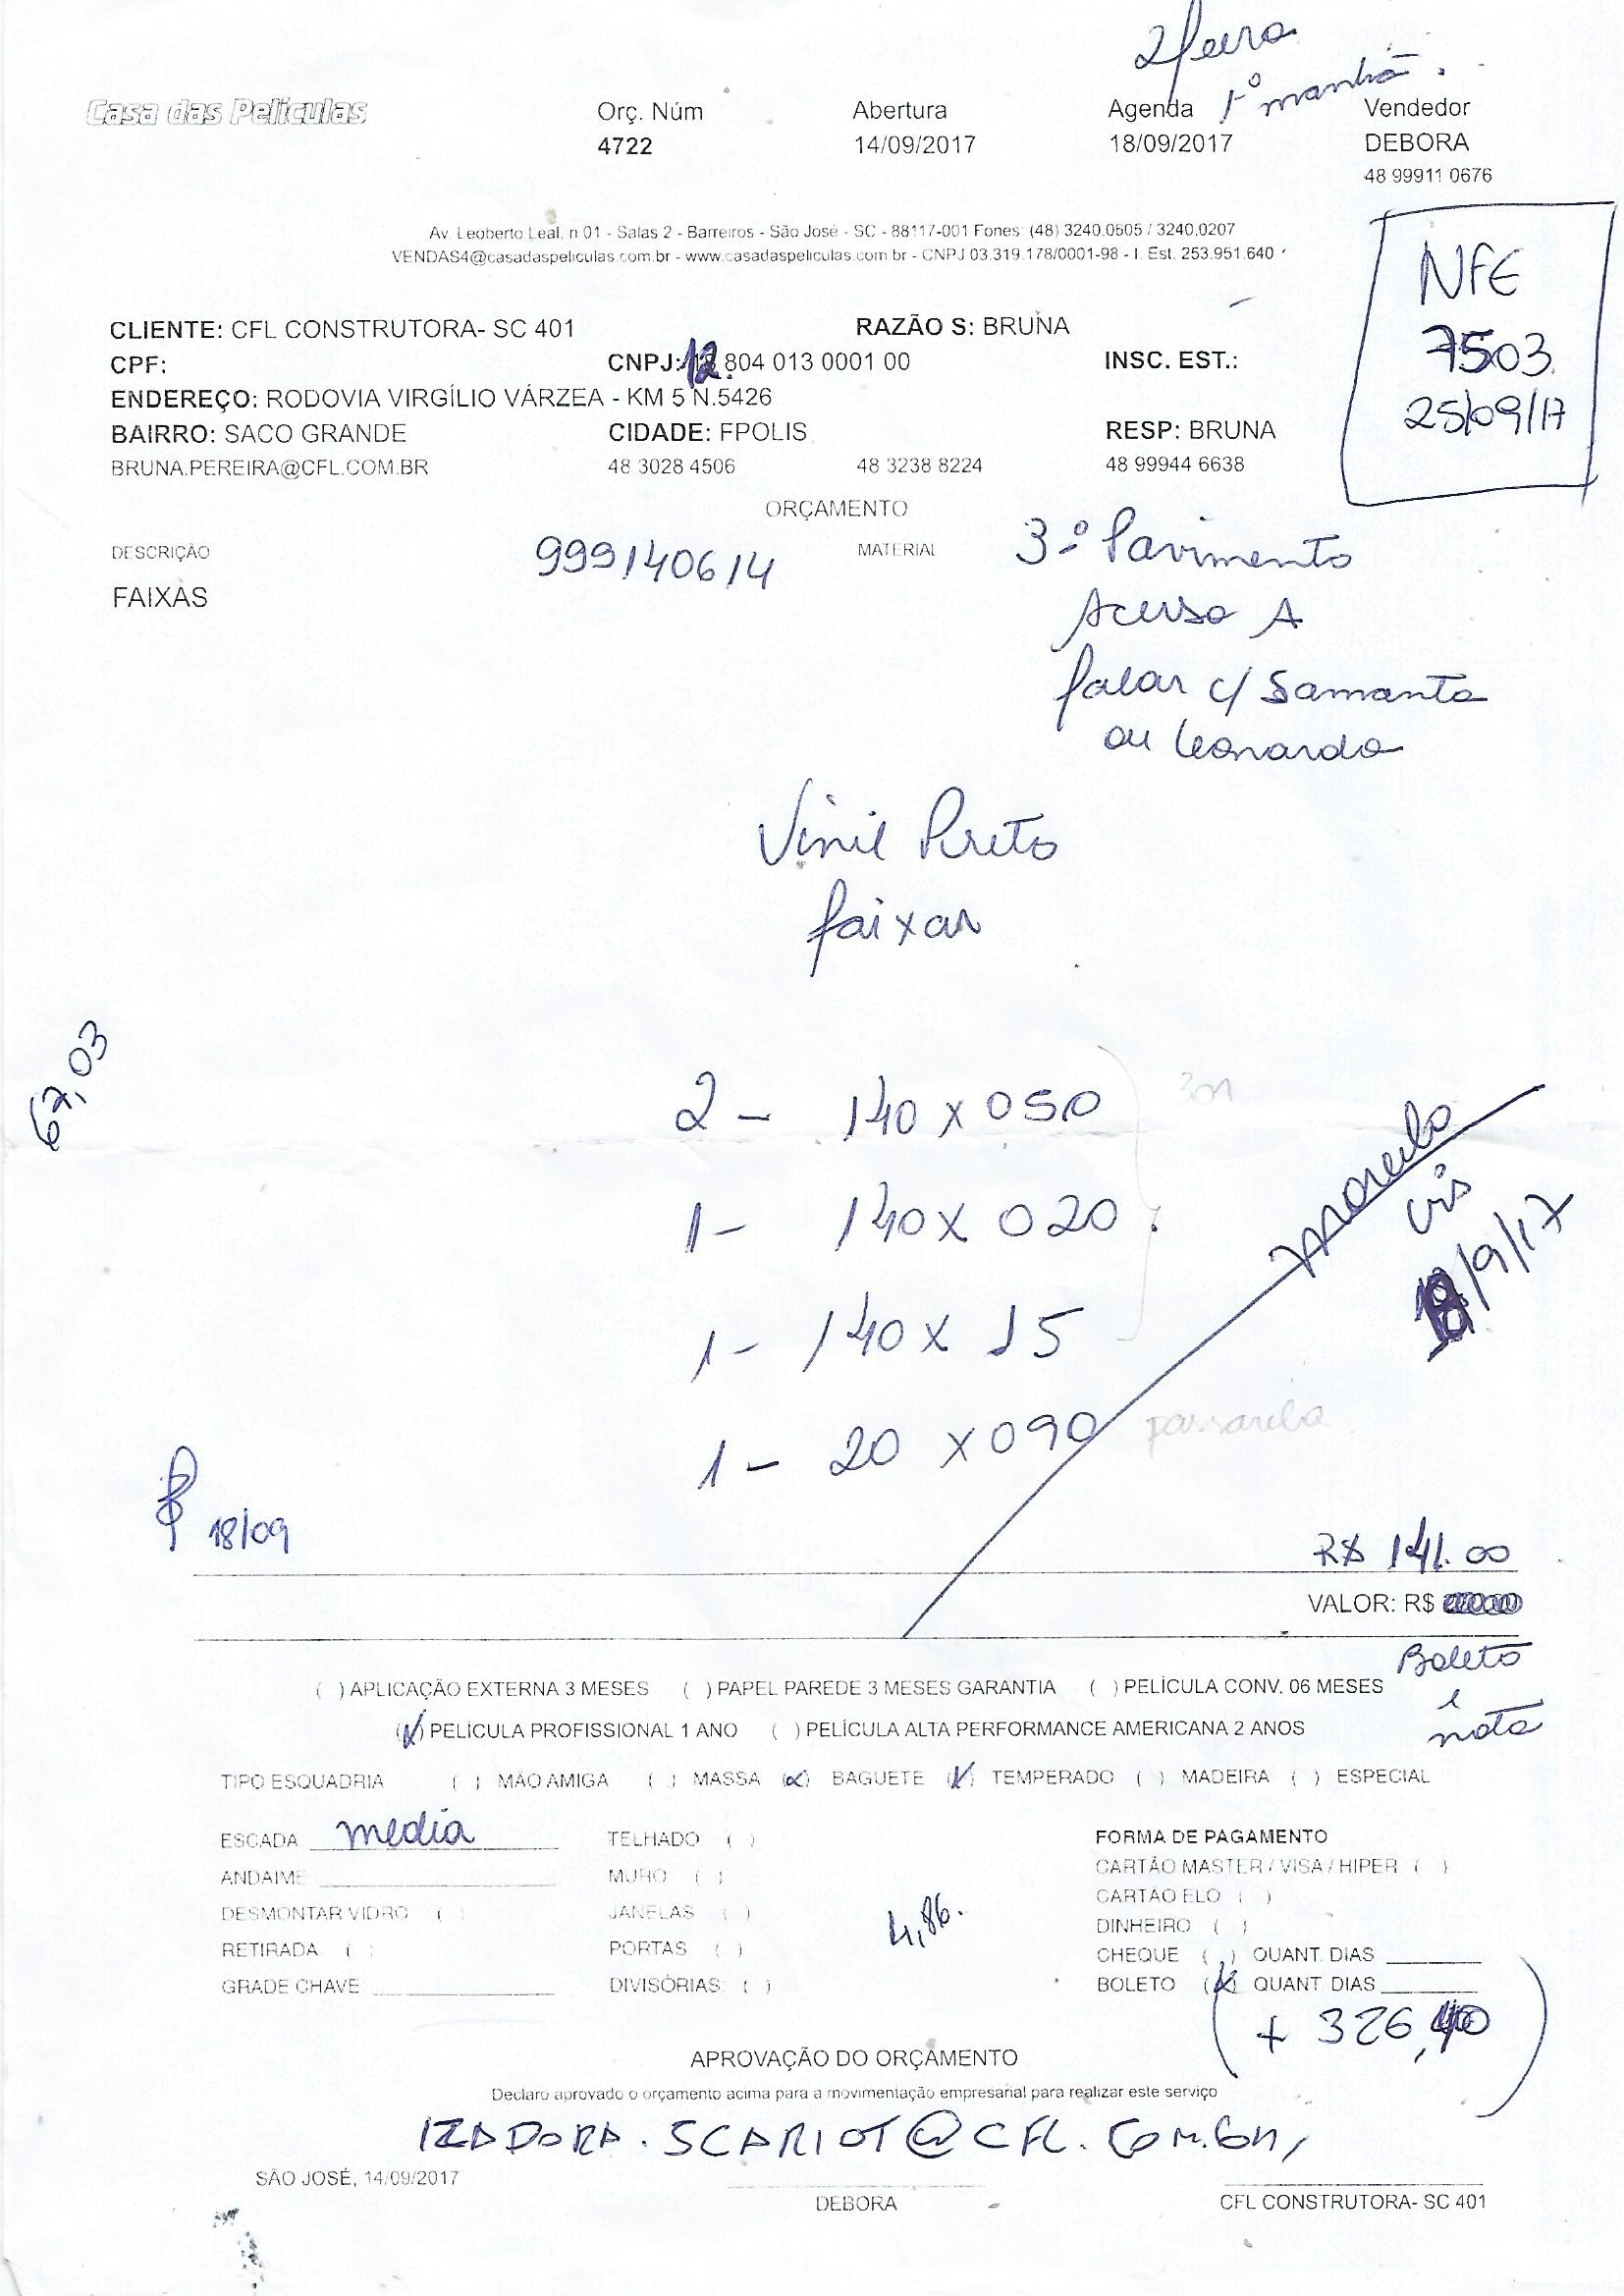 2ª feira
1º manhã.
Casa das Películas
Orç. Núm Abertura Agenda Vendedor
4722 14/09/2017 18/09/2017 DEBORA
48 99911 0676
Av. Leoberto Leal, n 01 - Salas 2 - Barreiros - São José - SC - 88117-001 Fones: (48) 3240.0605 / 3240.0207
VENDAS4@casadaspeliculas.com.br - www.casadaspeliculas.com.br - CNPJ 03.319.178/0001-98 - I. Est. 253.951.640
NFE
7503
25/09/17
CLIENTE: CFL CONSTRUTORA- SC 401 RAZÃO S: BRUNA
CPF: CNPJ: 12. 804 013 0001 00 INSC. EST.:
ENDEREÇO: RODOVIA VIRGÍLIO VÁRZEA - KM 5 N.5426
BAIRRO: SACO GRANDE CIDADE: FPOLIS RESP: BRUNA
BRUNA.PEREIRA@CFL.COM.BR 48 3028 4506 48 3238 8224 48 99944 6638
ORÇAMENTO
DESCRIÇÃO 999140614 MATERIAL 3º Pavimento
FAIXAS
Acesso A
falar c/ Samanta
ou Leonardo
Vinil Preto
faixas
67,03
2 - 140 x 050 3m
1 - 140 x 020
1 - 140 x 15
1 - 20 x 090 passarela
18/9/17
18/09
R$ 141.00
VALOR: R$
Boleto
e
nota
( ) APLICAÇÃO EXTERNA 3 MESES ( ) PAPEL PAREDE 3 MESES GARANTIA ( ) PELÍCULA CONV. 06 MESES
(x) PELÍCULA PROFISSIONAL 1 ANO ( ) PELÍCULA ALTA PERFORMANCE AMERICANA 2 ANOS
TIPO ESQUADRIA ( ) MÃO AMIGA ( ) MASSA (x) BAGUETE (x) TEMPERADO ( ) MADEIRA ( ) ESPECIAL
ESCADA media TELHADO ( ) FORMA DE PAGAMENTO
ANDAIME MURO ( ) CARTÃO MASTER / VISA / HIPER ( )
DESMONTAR VIDRO ( ) JANELAS ( ) 4,86. CARTÃO ELO ( )
DINHEIRO ( )
RETIRADA ( ) PORTAS ( ) CHEQUE ( ) QUANT. DIAS
GRADE CHAVE DIVISÓRIAS: ( ) BOLETO (x) QUANT DIAS
(+ 326,40)
APROVAÇÃO DO ORÇAMENTO
Declaro aprovado o orçamento acima para a movimentação empresarial para realizar este serviço
IZADORA.SCARIOT@CFL.COM.BR
SÃO JOSÉ, 14/09/2017
DEBORA CFL CONSTRUTORA- SC 401